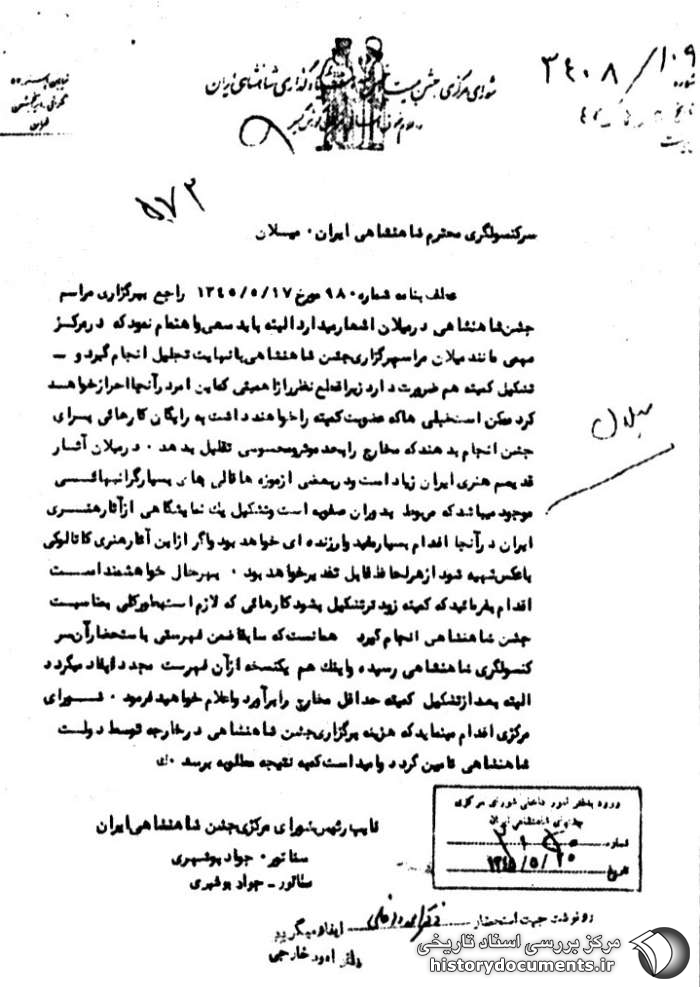 شورای مرکزی جشن شاهنشاهی ایران
۳۴۰۸/۱۰۹
شماره
تهران
۵۷۳
سرکنسولگری محترم شاهنشاهی ایران ۰ میلان
عطف بنامه شماره ۹۸۰ مورخ ۱۳۴۵/۵/۱۷ راجع ببرگزاری مراسم
جشن شاهنشاهی در میلان اشعار میدارد البته باید سعی و اهتمام نمود که در مرکز
مهمی مانند میلان مراسم برگزاری جشن شاهنشاهی با نهایت تجلیل انجام گیرد و –
تشکیل کمیته هم ضرورت دارد زیرا قطع نظر از اهمیتی که این امر در آنجا احراز خواهد
کرد ممکن است خیلی ها که عضویت کمیته را خواهند داشت به رایگان کارهائی برای
جشن انجام بدهند که مخارج را بحد موثر و محسوسی تقلیل بدهد ۰ در میلان آثار
قدیم هنری ایران زیاد است و در بعضی از موزه ها قالی های بسیار گرانبهائی
موجود میباشد که مربوط بدوران صفویه است و تشکیل یك نمایشگاهی از آثار هنری
ایران در آنجا اقدام بسیار مفید و ارزنده ای خواهد بود و اگر از این آثار هنری کاتالوکی
با عکس تهیه شود از هر لحاظ قابل تقدیر خواهد بود ۰ بهر حال خواهشمند است
اقدام بفرمائید که کمیته زودتر تشکیل بشود کارهائی که لازم است بطور کلی بمناسبت
جشن شاهنشاهی انجام گیرد همانست که سابقا ضمن فهرستی باستحضار آن سر
کنسولگری شاهنشاهی رسیده و اینك هم یکنسخه از آن فهرست مجددا ایفاد میگردد
البته بعد از تشکیل کمیته حداقل مخارج را برآورد و اعلام خواهید فرمود ۰ شورای
مرکزی اقدام مینماید که هزینه برگزاری جشن شاهنشاهی در خارجه توسط دولت
شاهنشاهی تامین گردد و امید است که به نتیجه مطلوبه برسد
میلان
نایب رئیس شورای مرکزی جشن شاهنشاهی ایران
سناتور ۰ جواد بوشهری
سناتور – جواد بوشهری
ورود بدفتر امور داخلی شورای مرکزی
جشن شاهنشاهی ایران
شماره
تاریخ ۱۳۴۵/۵/۲۰
رونوشت جهت استحضار ایفاد میگردد
دفتر امور خارجی
مرکز بررسی اسناد تاریخی
historydocuments.ir